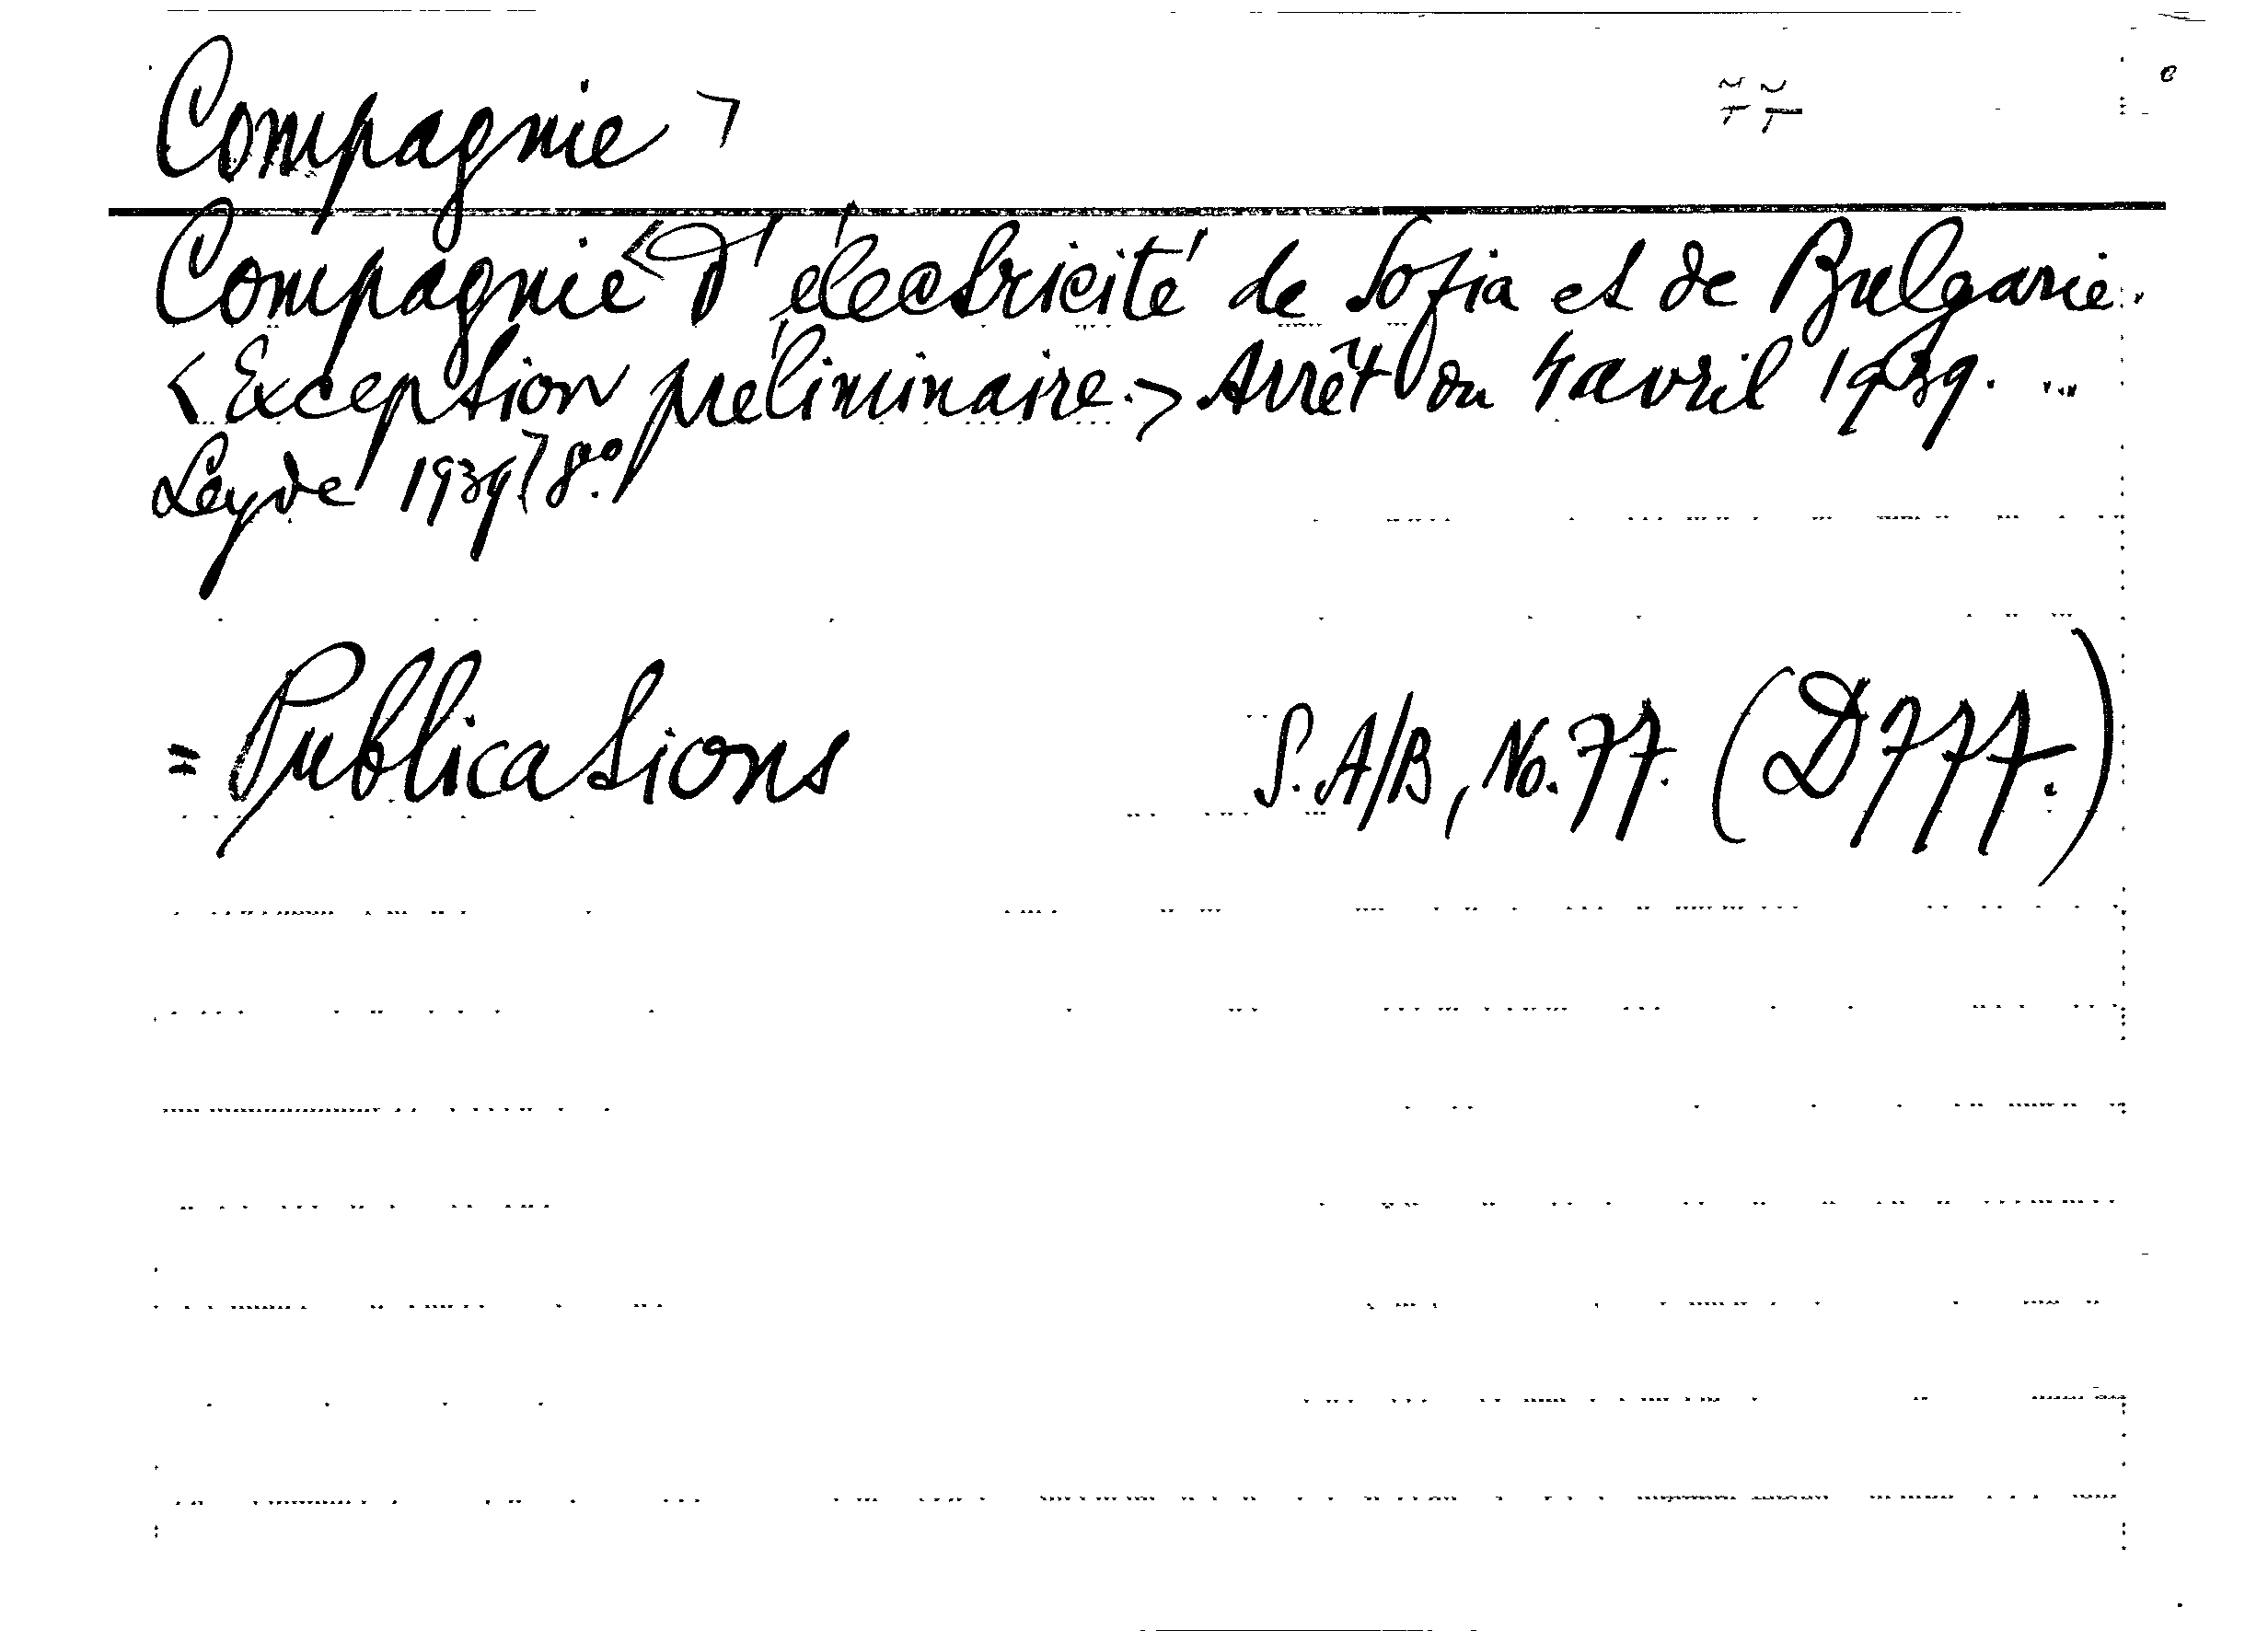 Compagnie >
Compagnie < d'électricité de Sofia et de Bulgarie.
< Exception préliminaire. > Arrêt du 4 avril 1939. ...
Leyde 1939. 8°.
= Publications S. A/B, No. 77. (D777.)